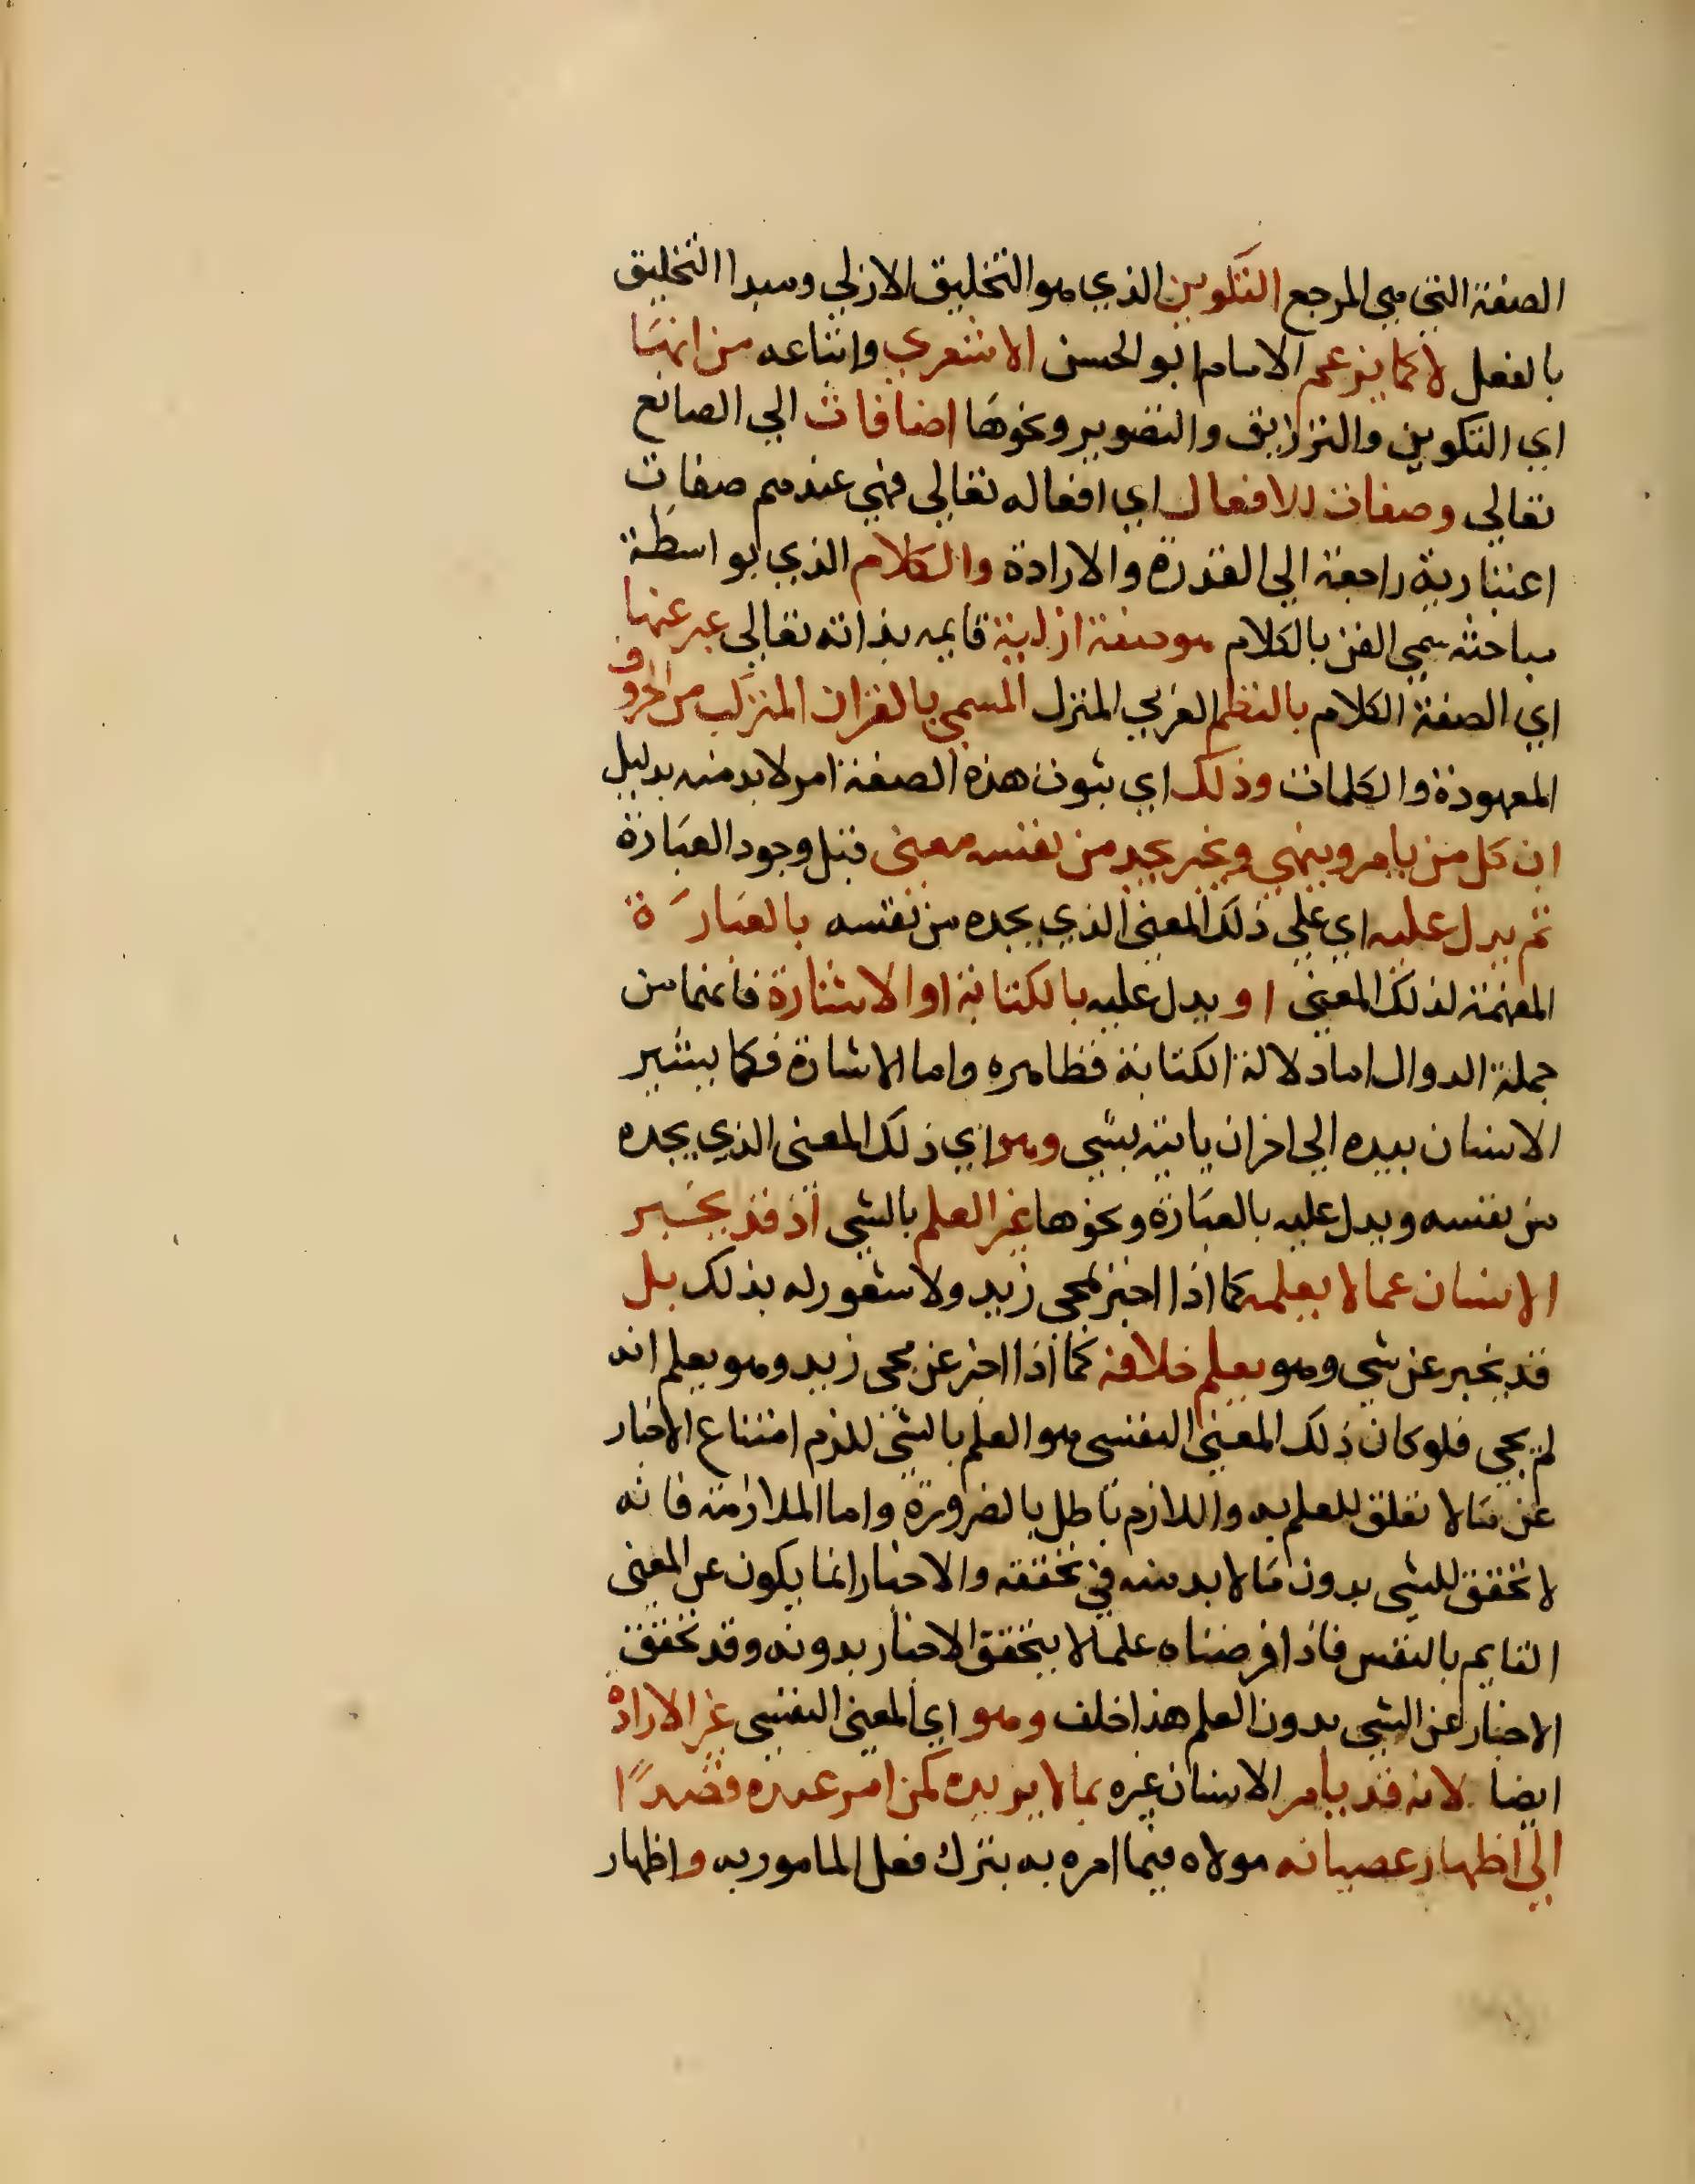 الصفة التي هي المرجع التكوين الذي هو التخليق الازلي ومبدا التخليق
بالفعل لا كما يزعم الامام ابو الحسن الاشعري واتباعه من انها
اي التكوين والترزيق والتصوير ونحوها اضافات الي الصانع
تعالي وصفات للافعال اي افعاله تعالي فهي عندهم صفات
اعتبارية راجعة الي القدرة والارادة والكلام الذي بواسطة
مباحثه سمي الفن بالكلام هو صفة ازلية قايمه بذاته تعالي عبر عنها
اي الصفة الكلام بالنظم العربي المنزل المسمي بالقران المتركب من الحروف
المعهودة والكلمات وذلك اي ثبوت هذه الصفة امر لا بد منه بدليل
ان كل من يامر وينهي ويخبر يجد من نفسه معني قبل وجود العبارة
ثم يدل عليه اي علي ذلك المعني الذي يجده من نفسه بالعبارة
المفهمة لذلك المعني او يدل عليه بالكتابة او الاشارة فانهما من
جملة الدوال اما دلالة الكتابة فظاهره واما الاشارة فكما يشير
الانسان بيده الي اخر ان ياتيه بشي وهو اي ذلك المعني الذي يجده
من نفسه ويدل عليه بالعبارة ونحوها غير العلم بالشي اذ قد يخبر
الانسان عما لا يعلمه كما اذا اخبر بمجي زيد ولا شعور له بذلك بل
قد يخبر عن شي وهو يعلم خلافه كما اذا اخبر عن مجي زيد وهو يعلم انه
لم يجي فلو كان ذلك المعني النفسي هو العلم بالشي للزم امتناع الاخبار
عن ما لا تعلق للعلم به واللازم باطل بالضرورة واما الملازمة فانه
لا تحقق للشي بدون ما لا بد منه في تحققه والاخبار انما يكون عن المعني
القايم بالنفس فاذا فرضناه علما لا يتحقق الاخبار بدونه وقد تحقق
الاخبار عن الشي بدون العلم هذا خلف وهو اي المعني النفسي غير الارادة
ايضا لانه قد يامر الانسان غيره بما لا يريده كمن امر عبده قصدًا
الي اظهار عصيانه مولاه فيما امره به بترك فعل المامور به واظهار